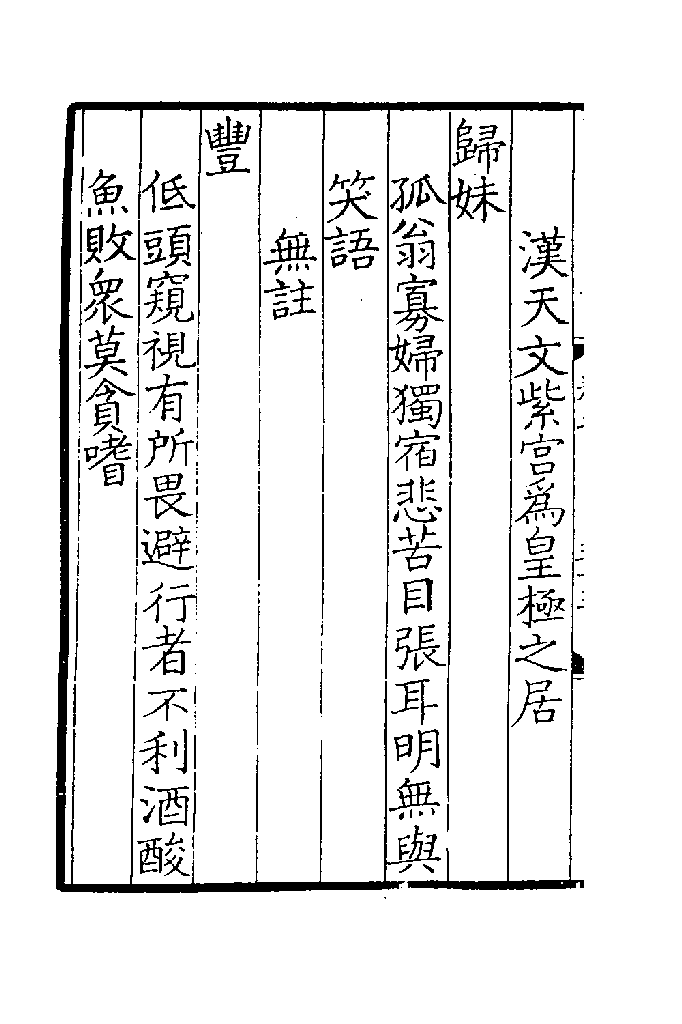 漢天文紫宫爲皇極之居
歸妹
孤翁寡婦獨宿悲苦目張耳明無與
笑語
無註
豐
低頭窺視有所畏避行者不利酒酸
魚敗衆莫貪嗜